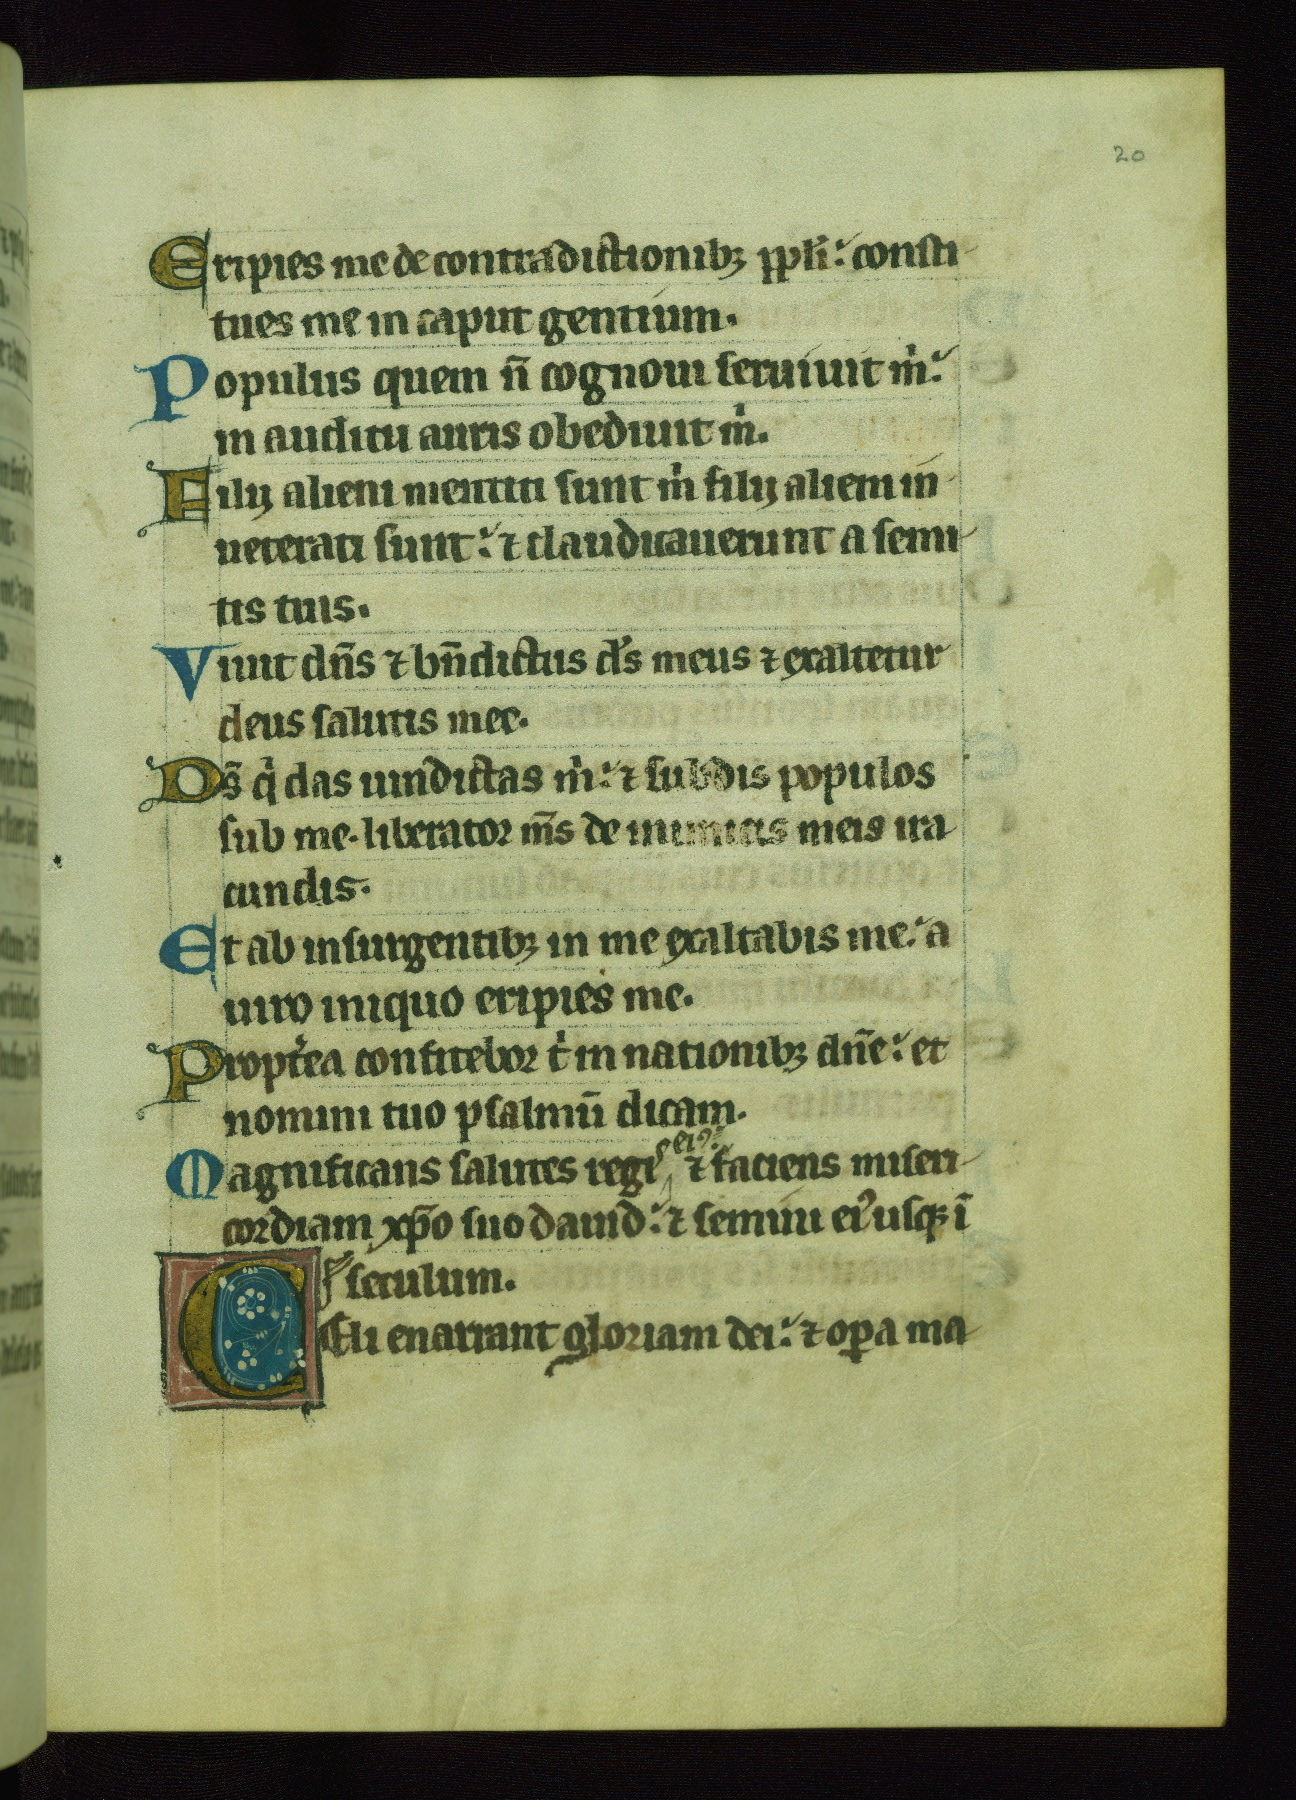 20
Eripies me de contradictionibꝫ ppl̄i: consti
tues me in caput gentium.
Populus quem n̄ cognoui seruiuit m̉:
in auditu auris obediuit m̉.
Filij alieni mentiti sunt m̉ filij alieni in
ueterati sunt: ⁊ claudicauerunt a semi
tis tuis.
Viuit dn̄s ⁊ bn̄dictus d̉s meus ⁊ exaltetur
deus salutis mee.
Ds̄ q̉ das uindictas m̉: ⁊ subdis populos
sub me. liberator ms̄ de inimicis meis ira
cundis.
Et ab insurgentibꝫ in me exaltabis me: a
uiro iniquo eripies me.
Propt̉ea confitebor t̉ in nationibꝫ dn̄e: et
nomini tuo psalmū dicam.
Magnificans salutes regis ei⁹: ⁊ faciens miseri
cordiam xp̄o suo dauid: ⁊ semini ei⁹ usqꝫ ī
seculum.
Celi enarrant gloriam dei: ⁊ op̲a ma